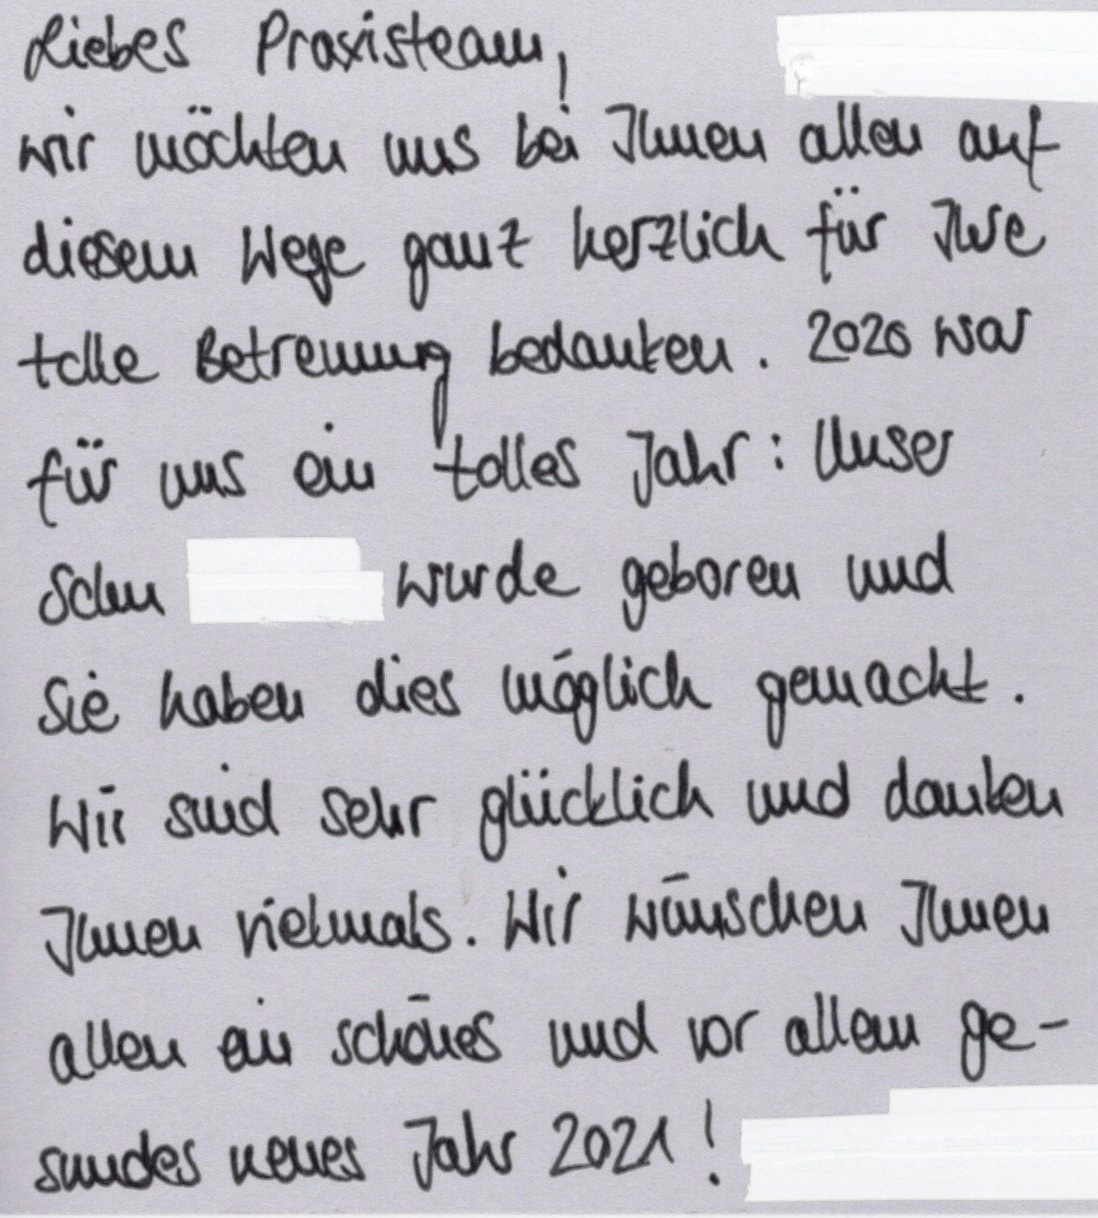 Liebes Praxisteam,
wir möchten uns bei Ihnen allen auf
diesem Wege ganz herzlich für Ihre
tolle Betreuung bedanken. 2020 war
für uns ein tolles Jahr: Unser
Sohn wurde geboren und
Sie haben dies möglich gemacht.
Wir sind sehr glücklich und danken
Ihnen vielmals. Wir wünschen Ihnen
allen ein schönes und vor allem ge-
sundes neues Jahr 2021!